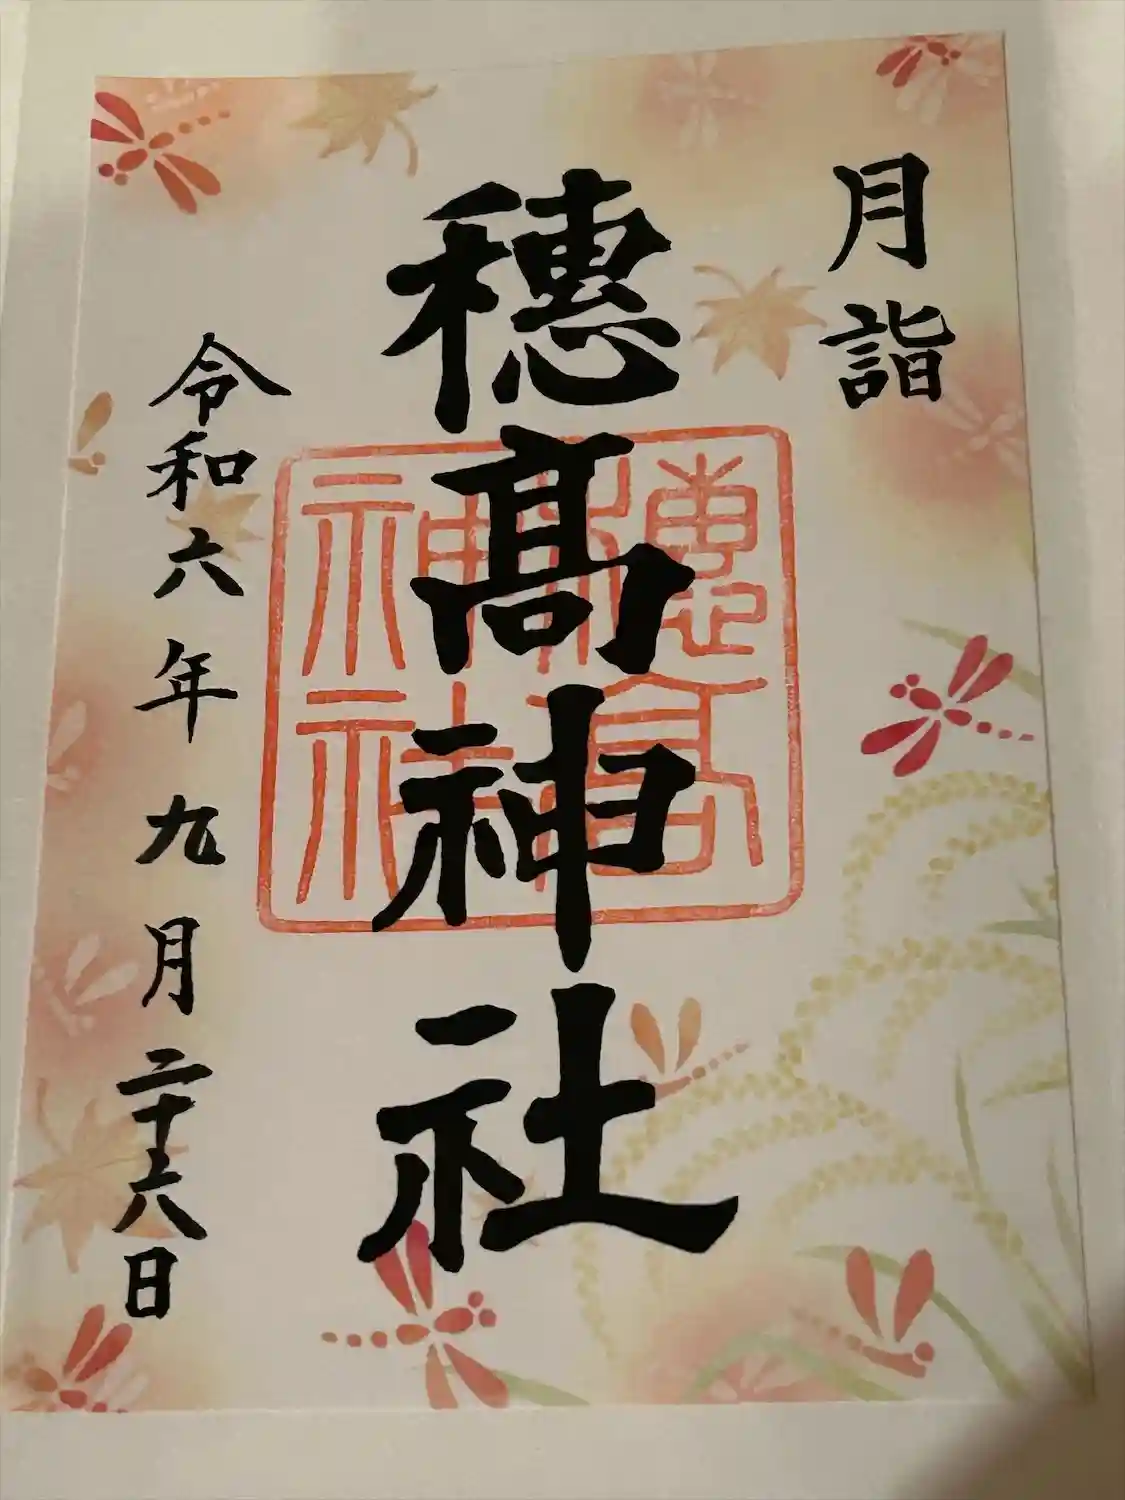 月詣
穂髙神社
穂高
神社
令和六年九月二十六日